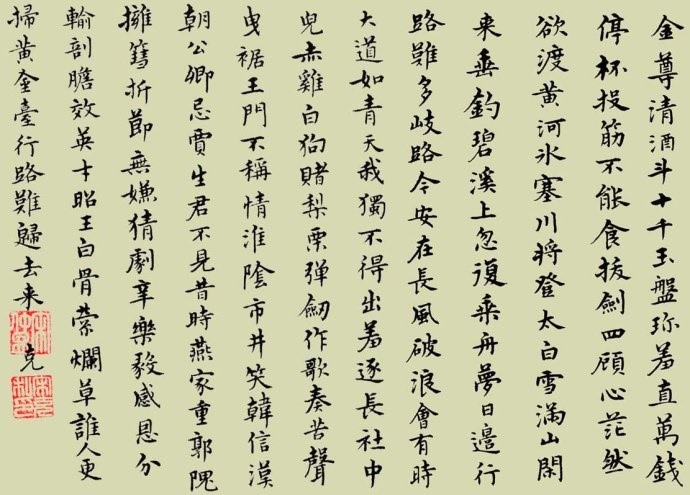 金尊清酒斗十千玉盤珎羞直萬錢
停杯投筋不能食拔劍四顧心茫然
欲渡黄河氷塞川將登太白雪滿山閑
来垂釣碧溪上忽復乘舟夢日邊行
路難多岐路今安在長風破浪會有時
大道如青天我獨不得出羞逐長社中
兒赤雞白狗賭梨栗弹劒作歌奏苦聲
曳裾王門不稱情淮陰市井笑韓信漢
朝公卿忌賈生君不見昔時燕家重郭隗
擁篲折節無嫌猜劇辛樂毅感恩分
輸剖膽效英才昭王白骨縈爛草誰人更
掃黄金臺行路難歸去来 克